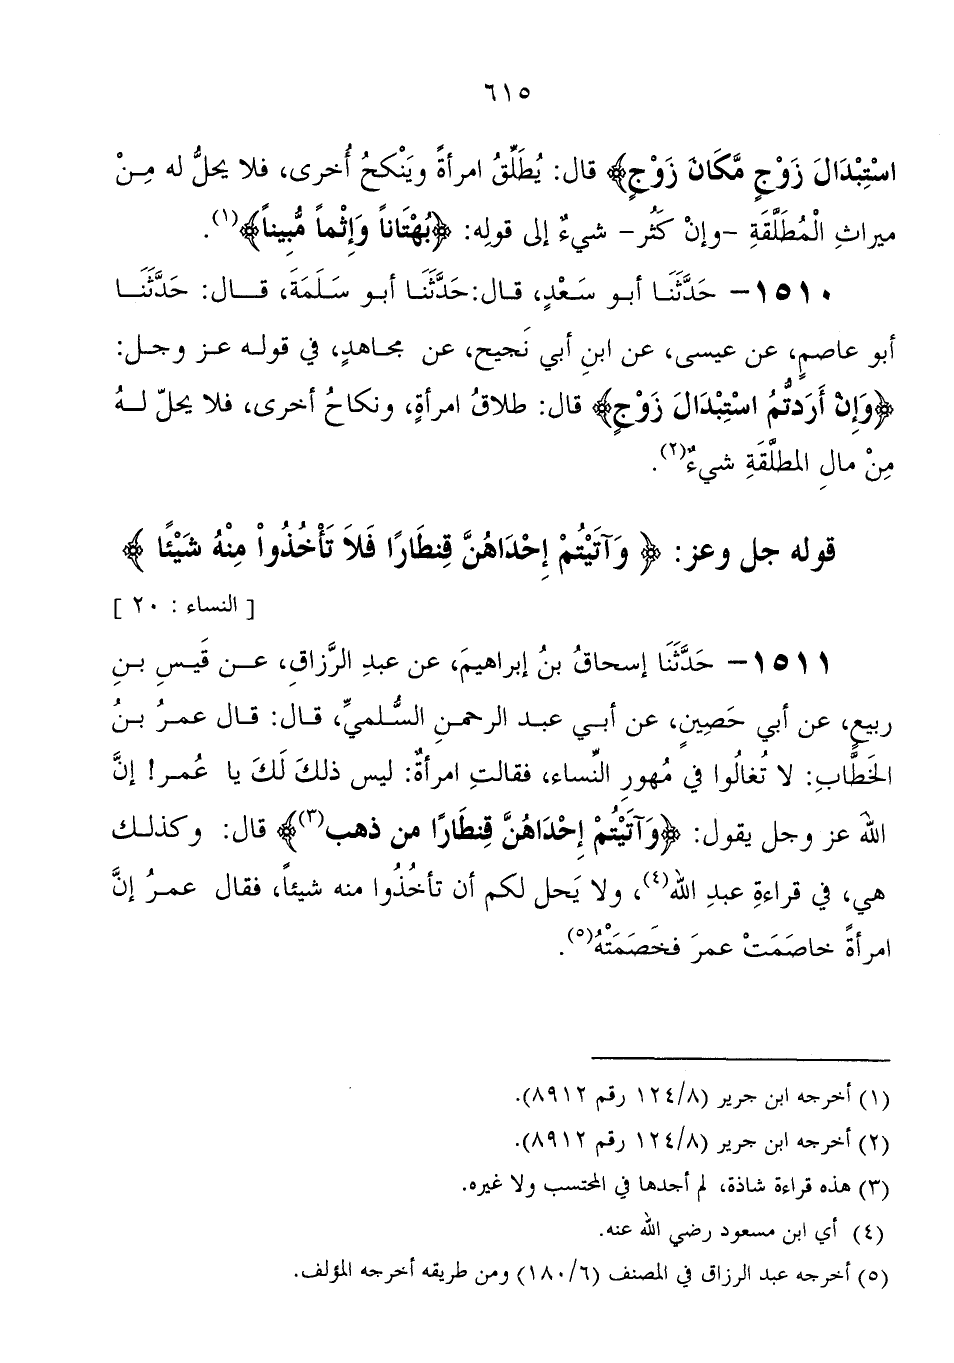 ٦١٥
اسْتِبْدَالَ زَوْجٍ مَّكَانَ زَوْجٍ﴾ قال: يُطَلِّقُ امرأةً ويَنْكحُ أُخرى، فلا يحلُّ له مِنْ
ميراثِ الْمُطَلَّقَةِ -وإنْ كَثُر- شيءٌ إلى قولِه: ﴿بُهْتَاناً وَإِثْماً مُّبِيناً﴾(١).
١٥١٠- حَدَّثَنَا أبو سَعْدٍ، قال: حَدَّثَنَا أبو سَلَمَةَ، قال: حَدَّثَنَا
أبو عاصمٍ، عن عيسى، عن ابنِ أبي نَجيح، عن مجاهدٍ، في قوله عز وجل:
﴿وَإِنْ أَرَدتُّمُ اسْتِبْدَالَ زَوْجٍ﴾ قال: طلاقُ امرأةٍ، ونكاحُ أخرى، فلا يحلّ لهُ
مِنْ مالِ المطلَّقَةِ شيءٌ(٢).
قوله جل وعز: ﴿ وَآتَيْتُمْ إِحْدَاهُنَّ قِنطَارًا فَلاَ تَأْخُذُواْ مِنْهُ شَيْئًا ﴾
[ النساء : ٢٠ ]
١٥١١- حَدَّثَنَا إسحاقُ بنُ إبراهيمَ، عن عبدِ الرَّزاقِ، عن قَيسِ بنِ
ربيعٍ، عن أبي حَصِينٍ، عن أبي عبد الرحمنِ السُّلميِّ، قال: قال عمرُ بنُ
الخطَّابِ: لا تُغالُوا في مُهورِ النِّساء، فقالتِ امرأةٌ: ليس ذلكَ لَكَ يا عُمر! إنَّ
اللهَ عز وجل يقول: ﴿وَآتَيْتُمْ إِحْدَاهُنَّ قِنطَارًا من ذهب(٣)﴾ قال: وكذلك
هي، في قراءةِ عبدِ الله(٤)، ولا يَحل لكم أن تأخُذُوا منه شيئاً، فقال عمرُ إنَّ
امرأةً خاصَمَتْ عمرَ فخَصَمَتْهُ(٥).
(١) أخرجه ابن جرير (١٢٤/٨ رقم ٨٩١٢).
(٢) أخرجه ابن جرير (١٢٤/٨ رقم ٨٩١٢).
(٣) هذه قراءة شاذة، لم أجدها في المحتسب ولا غيره.
(٤) أي ابن مسعود رضي الله عنه.
(٥) أخرجه عبد الرزاق في المصنف (١٨٠/٦) ومن طريقه أخرجه المؤلف.